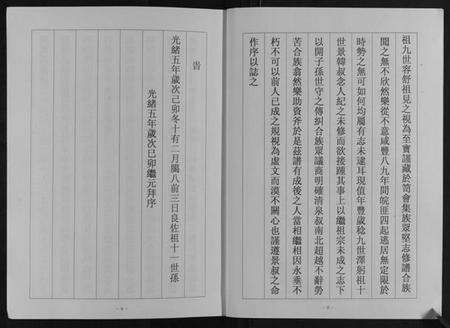 祖九世容舒祖見之視為至寶謹藏於笥會集族眾堅志修譜合族
聞之無不欣然樂從不意咸豐八九年間皖匪四起逃居無定限於
時勢之無可如何均屬有志未逮耳現值年豐歲稔九世澤躬祖十
世景韓叔念人紀之未修而欲接踵其事上以繼祖宗未成之志下
以開子孫世守之傳糾合族眾議商明確清泉叔南北超越不辭勞
苦合族翕然樂助資斧於是茲譜有成後之人當相繼相因永垂不
朽不可以前人已成之規視為虛文而漠不關心也謹遵景叔之命
作序以誌之
旹
光緒五年歲次己卯冬十有二月臈八前三日良佐祖十一世孫
光緒五年歲次己卯繼元拜序